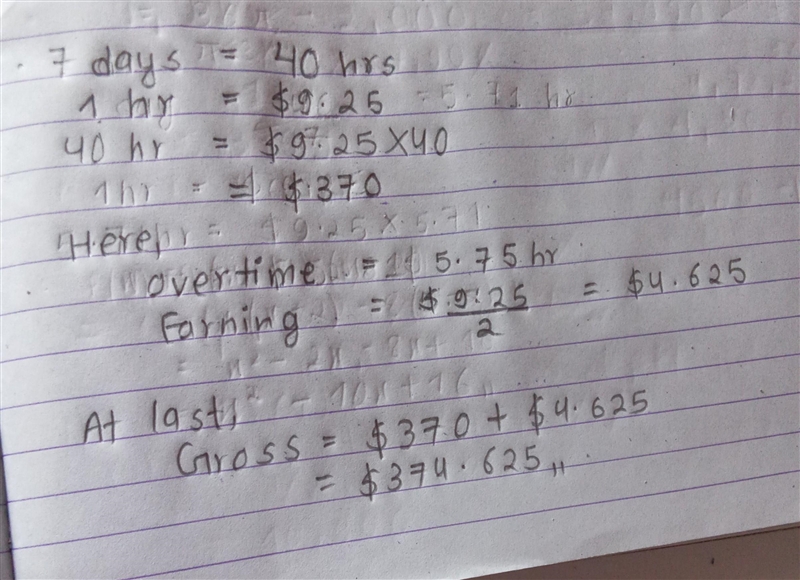 7 days = 40 hrs
1 hr = $9.25 = 5.71 hr
40 hr = $9.25 × 40
1 hr = = $370
Here, hr = $9.25 × 5.71
overtime = 5.75 hr
Earning = $9.25/2 = $4.625
At last,
Gross = $370 + $4.625
= $374.625,,